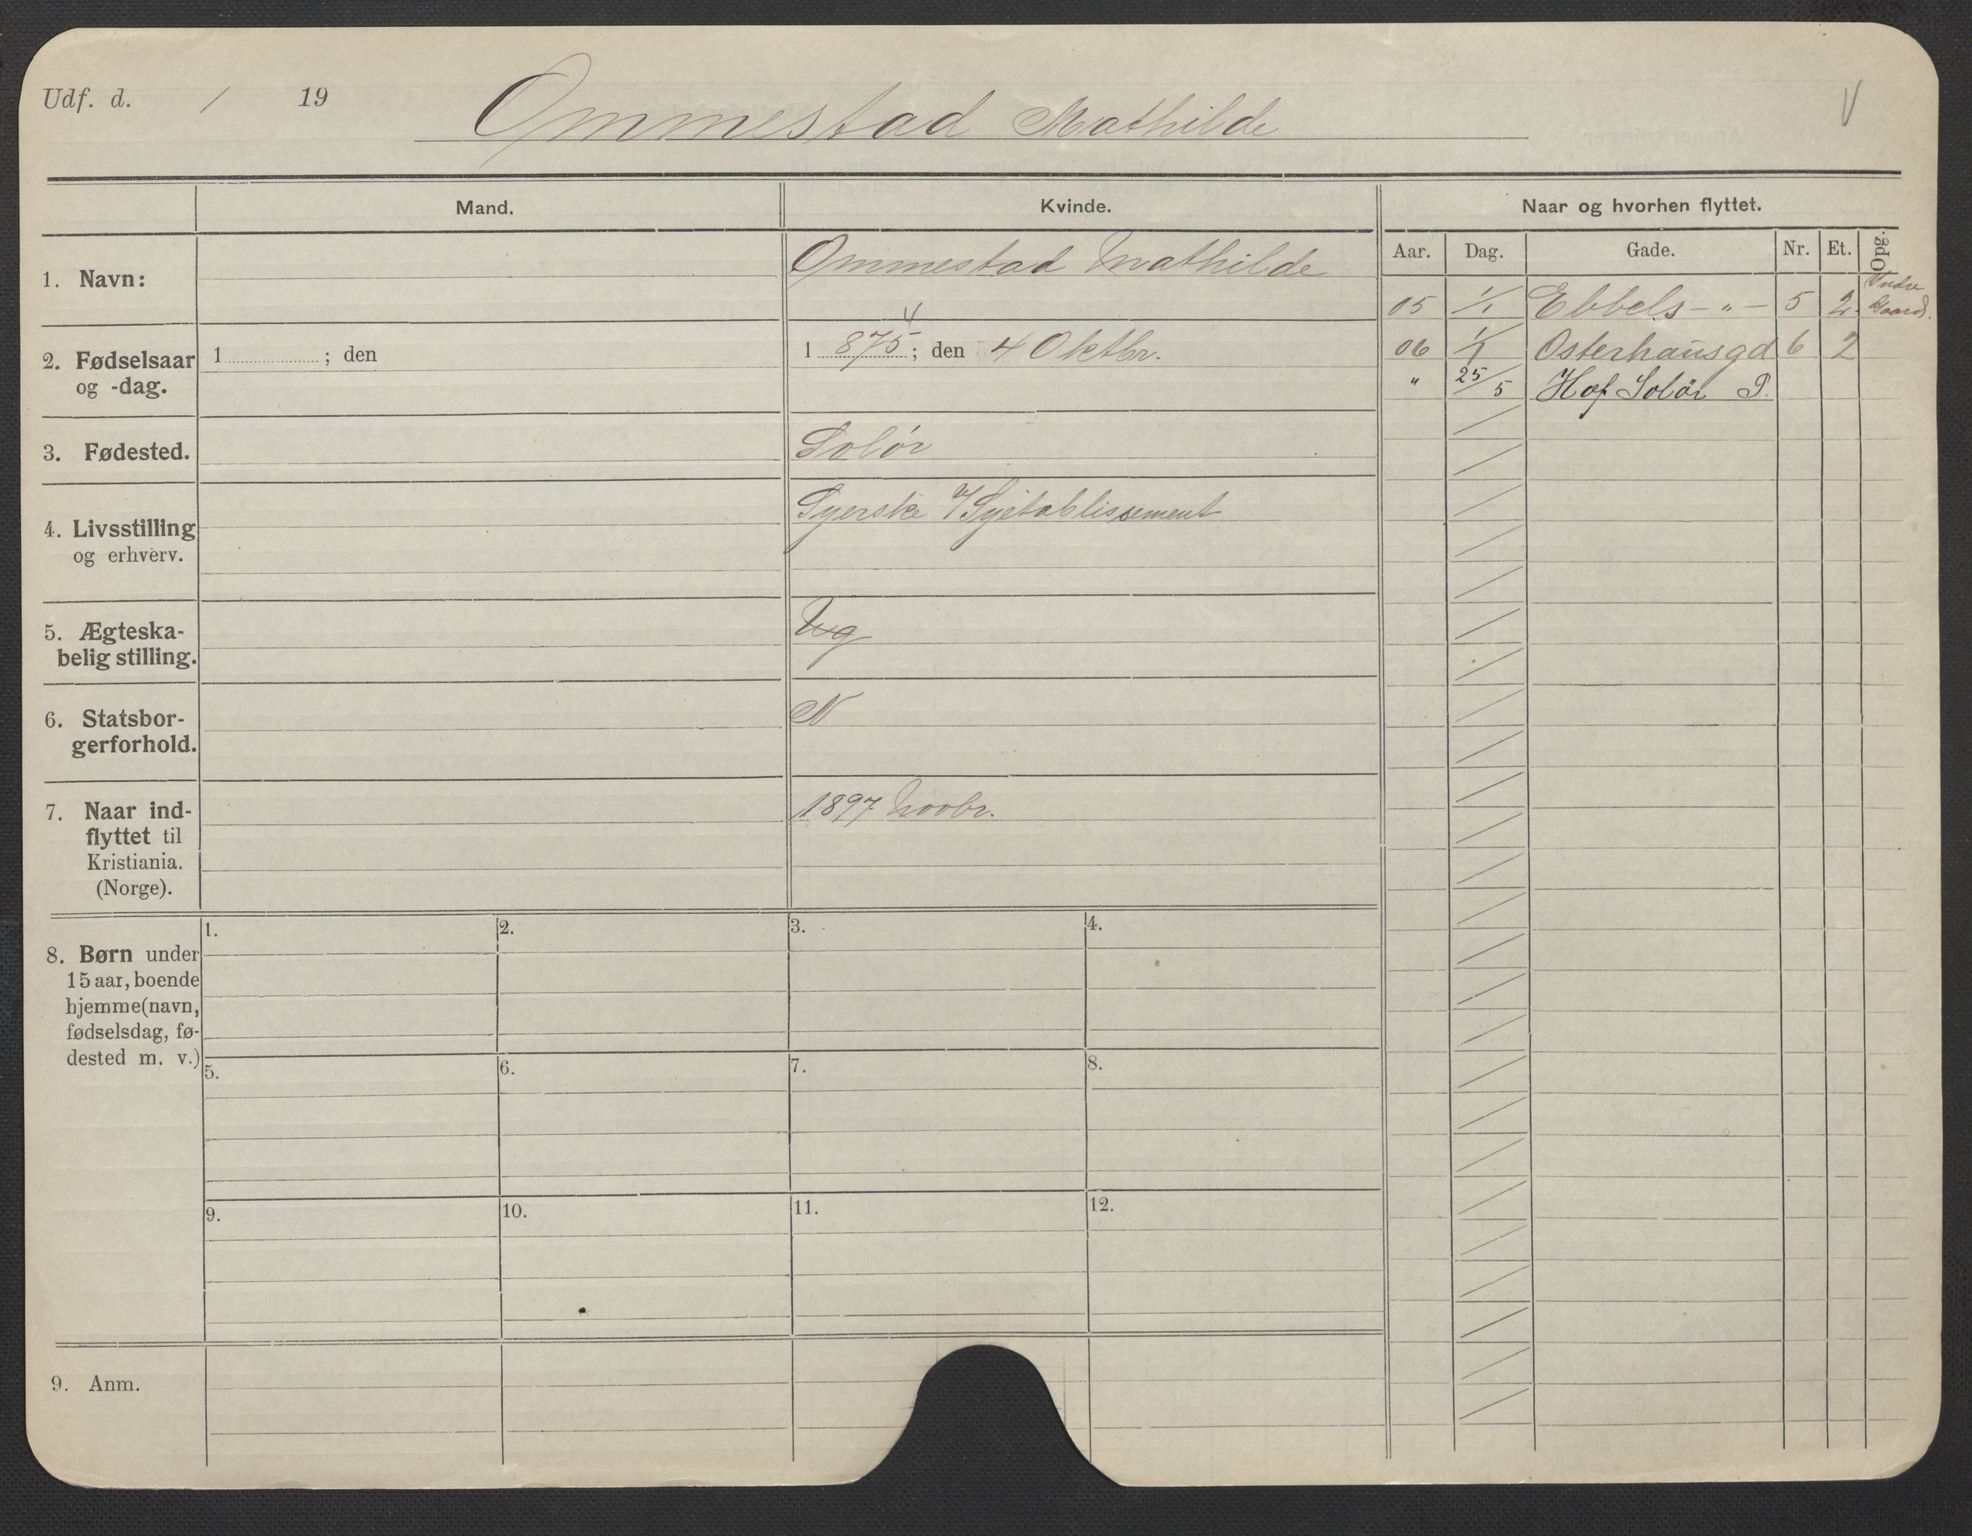 Udf. d. / 19
Ommestad Mathilde
V
Mand.
Kvinde.
Naar og hvorhen flyttet.
Aar. Dag. Gade. Nr. Et. Opg.
1. Navn:
Ommestad Mathilde
05 1/1 Ebbels - " - 5 2 Vestre Gaard.
06 1/1 Osterhausgd 6 2
" 25/5 Hof Solør P.
2. Fødselsaar
og -dag.
1 ; den
4
1 875 ; den 4 Oktbr.
3. Fødested.
Solør
4. Livsstilling
og erhverv.
Syerske Syetablissement
5. Ægteska-
belig stilling.
Ug
6. Statsbor-
gerforhold.
N
7. Naar ind-
flyttet til
Kristiania.
(Norge).
1897 Novbr.
8. Børn under
15 aar, boende
hjemme (navn,
fødselsdag, fø-
dested m. v.)
1. 2. 3. 4.
5. 6. 7. 8.
9. 10. 11. 12.
9. Anm.